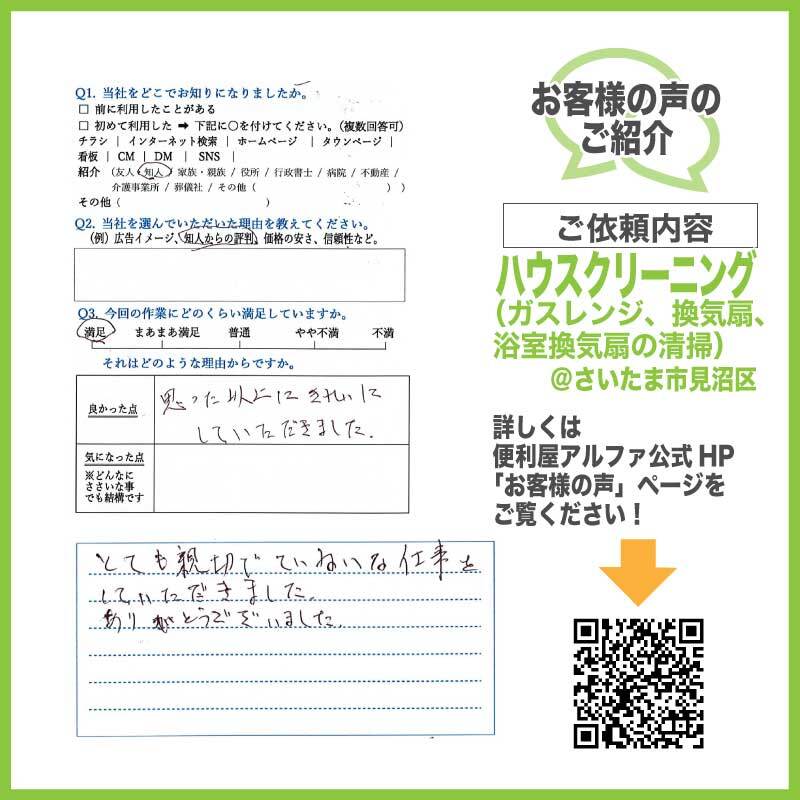 Q1. 当社をどこでお知りになりましたか。
□ 前に利用したことがある
□ 初めて利用した ➡ 下記に○を付けてください。（複数回答可）
チラシ | インターネット検索 | ホームページ | タウンページ |
看板 | CM | DM | SNS |
紹介 （友人・知人 / 家族・親族 / 役所 / 行政書士 / 病院 / 不動産 /
介護事業所 / 葬儀社 / その他（ ））
その他（ ）
Q2. 当社を選んでいただいた理由を教えてください。
（例）広告イメージ、知人からの評判、価格の安さ、信頼性など。
Q3. 今回の作業にどのくらい満足していますか。
満足 まあまあ満足 普通 やや不満 不満
それはどのような理由からですか。
良かった点
思った以上にきれいに
していただきました。
気になった点
※どんなに
ささいな事
でも結構です
とても親切でていねいな仕事を
していただきました。
ありがとうございました。
お客様の声の
ご紹介
ご依頼内容
ハウスクリーニング
（ガスレンジ、換気扇、
浴室換気扇の清掃）
@さいたま市見沼区
詳しくは
便利屋アルファ公式HP
「お客様の声」ページを
ご覧ください！